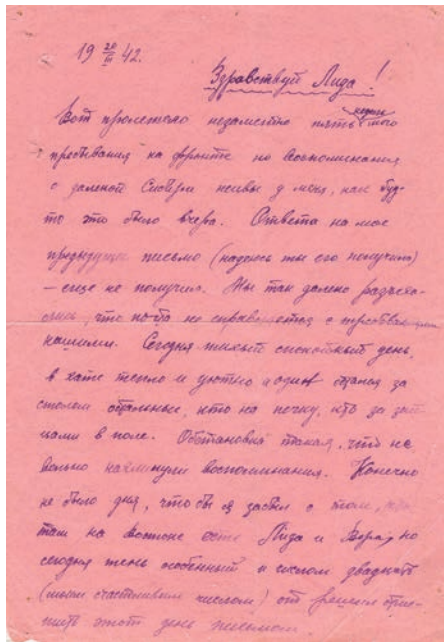 19 20/III 42.
Здравствуй Лида!
Вот пролетело незаметно пять недель моего
пребывания на фронте но воспоминания
о далекой Сибири живы у меня, как буд-
то это было вчера. Ответа на мое
предыдущее письмо (надеюсь ты его получила)
– еще не получил. Мы так далеко разъеха-
лись, что почта не справляется с требованиями
нашими. Сегодня тихий спокойный день,
в хате тепло и уютно я один сижу за
столом остальные, кто на печку, кто за зай-
цами в поле. Обстановка такая, что не
вольно нахлынули воспоминания. Конечно
не было дня, что бы я забыл о том, что
там на востоке есть Лида и Вера, но
сегодня день особенный и числом двадцать
(моим счастливым числом) от решил
этот день письмом